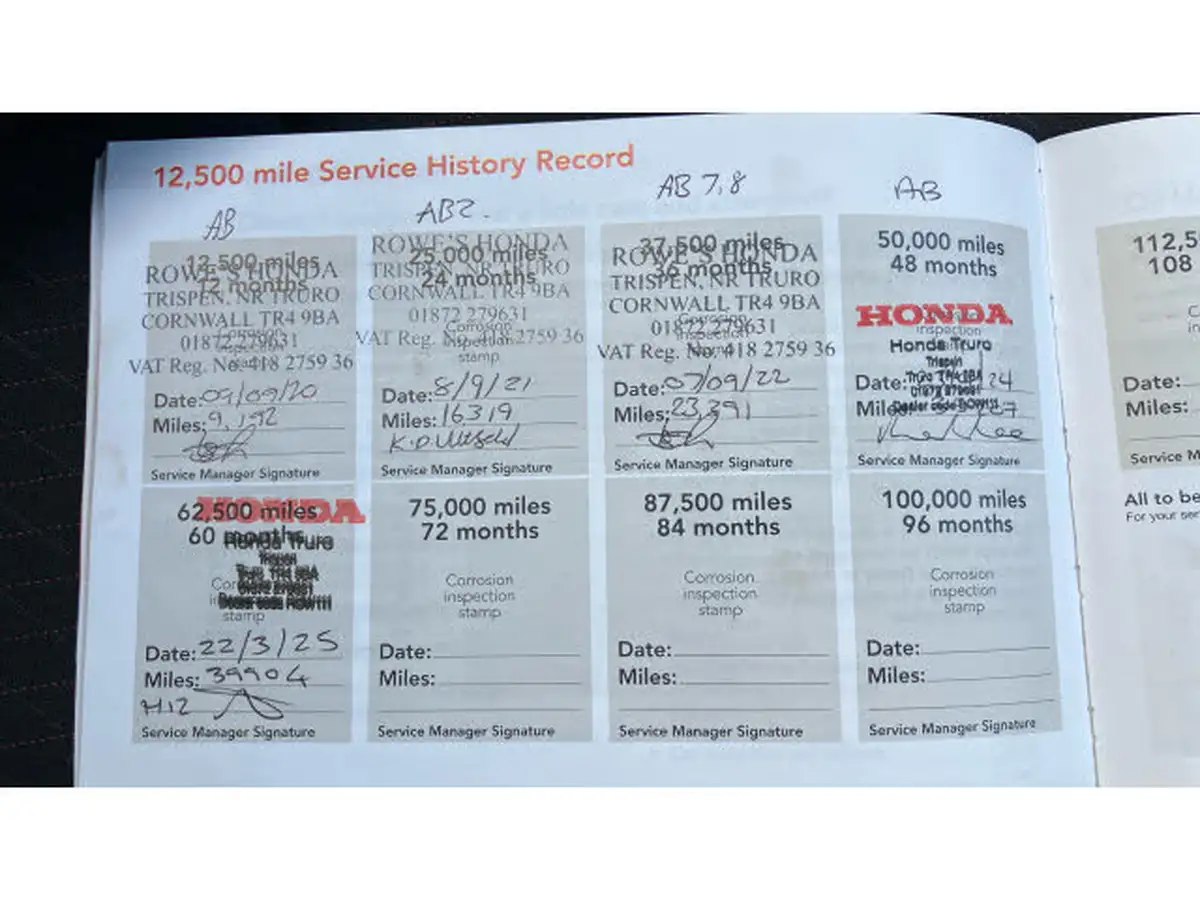 12,500 mile Service History Record
AB
12,500 miles
12 months
ROWE'S HONDA
TRISPEN, NR TRURO
CORNWALL TR4 9BA
01872 279631
VAT Reg. No. 418 2759 36
Corrosion
inspection
stamp
Date: 09/09/20
Miles: 9,192
Service Manager Signature
AB2.
25,000 miles
24 months
ROWE'S HONDA
TRISPEN, NR TRURO
CORNWALL TR4 9BA
01872 279631
VAT Reg. No. 418 2759 36
Corrosion
inspection
stamp
Date: 8/9/21
Miles: 16319
Service Manager Signature
AB 7,8
37,500 miles
36 months
ROWE'S HONDA
TRISPEN, NR TRURO
CORNWALL TR4 9BA
01872 279631
VAT Reg. No. 418 2759 36
Corrosion
inspection
Date: 07/09/22
Miles: 23,391
Service Manager Signature
AB
50,000 miles
48 months
HONDA
inspection
Honda Truro
Trispen
Truro TR4 9BA
01872 279631
Date: 24
Miles:
Service Manager Signature
62,500 miles
60 months
HONDA
Honda Truro
Trispen
Truro TR4 9BA
stamp
Date: 22/3/25
Miles: 39904
H12
Service Manager Signature
75,000 miles
72 months
Corrosion
inspection
stamp
Date:
Miles:
Service Manager Signature
87,500 miles
84 months
Corrosion
inspection
stamp
Date:
Miles:
Service Manager Signature
100,000 miles
96 months
Corrosion
inspection
stamp
Date:
Miles:
Service Manager Signature
112,5
108
C
Date:
Miles:
Service M
All to be
For your ser